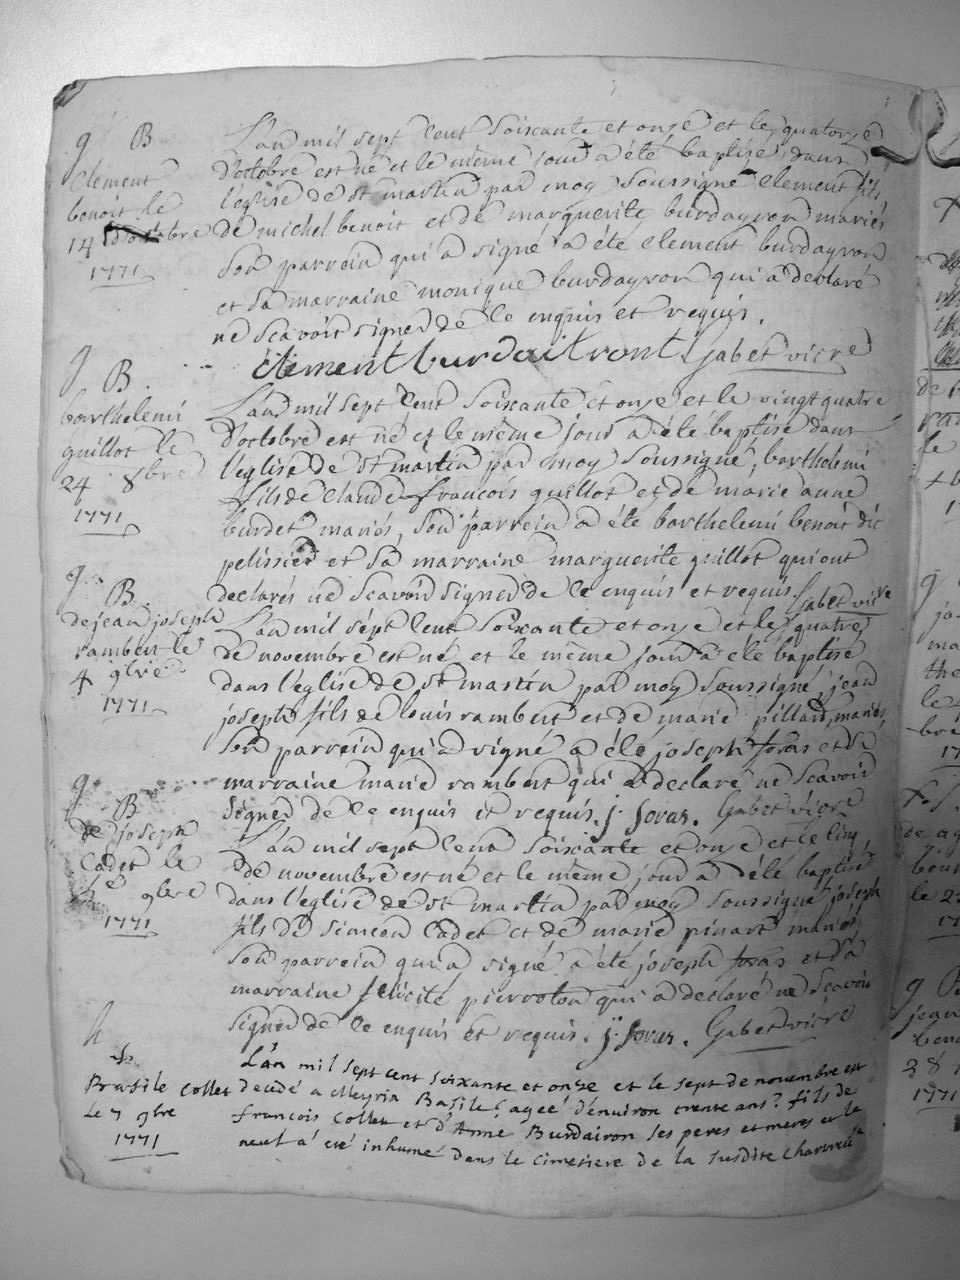 g B
Clement
benoit le
14 d'octobre
1771
L'an mil sept Cent Soixante et onze et le quatorze
d'octobre est né et le même jour a été baptizé dans
l'église de st martin par moy Soussigné Clement fils
de michel benoit et de marguerite burdayron mariés
Son parrein qui a signé a été Clement burdayron
et sa marraine monique burdayron qui a declaré
ne Scavoir signer de Ce enquis et requis.
Clement burdaitront Gabet vicre
g. B.
barthelemi
guillot le
24 8bre
1771
L'an mil sept Cent Soixante et onze et le vingt quatre
d'octobre est né et le même jour a été baptisé dans
l'église de st martin par moy Soussigné, barthelemi
fils de Claude françois guillot et de marie anne
burdet mariés, Son parrein a été barthelemi benoit dit
pelissier et Sa marraine marguerite guillot qui ont
declarés ne Scavoir Signer de Ce enquis et requis Gabet vicre
g.
B.
de jean joseph
rambert le
4 9bre
1771
L'an mil sept Cent Soixante et onze et le quatre
de novembre est né et le même jour a été baptisé
dans l'église de st martin par moy Soussigné, jean
joseph fils de louis rambert et de marie pillard, mariés,
Son parrein qui a signé a été joseph foras et Sa
marraine marie rambert qui a declaré ne Scavoir
Signer de Ce enquis et requis. j. foras. Gabet vicre
g.
B
de joseph
Cadet le
9bre
1771
L'an mil sept Cent Soixante et onze et le Cinq
de novembre est né et le même jour a été baptisé
dans l'église de st martin par moy Soussigné joseph
fils de Simeon Cadet et de marie pinard mariés
Son parrein qui a signé a été joseph foras et Sa
marraine felicité pierroton qui a declaré ne Scavoir
Signer de Ce enquis et requis. j. foras. Gabet vicre
h
Basile Collet
Le 7 9bre
1771
L'an mil sept cent soixante et onze et le sept de novembre est
decedé a Meyria Basile, ageé d'environ trente ans, fils de
francois Collet et d'Anne Burdairon ses peres et meres et le
neuf a été inhumé dans le Cimetiere de la susdite